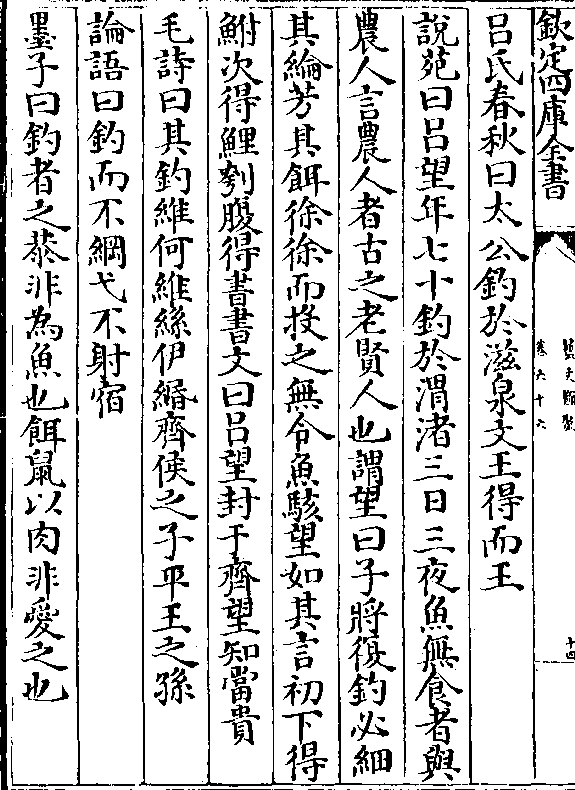 欽定四庫全書
藝文類聚
卷六十六
十四
呂氏春秋曰太公釣於滋泉文王得而王
說苑曰呂望年七十釣於渭渚三日三夜魚無食者與
農人言農人者古之老賢人也謂望曰子將復釣必細
其綸芳其餌徐徐而投之無令魚駭望如其言初下得
鮒次得鯉刳腹得書書文曰呂望封于齊望知當貴
毛詩曰其釣維何維絲伊緡齊侯之子平王之孫
論語曰釣而不綱弋不射宿
墨子曰釣者之恭非為魚也餌鼠以肉非愛之也